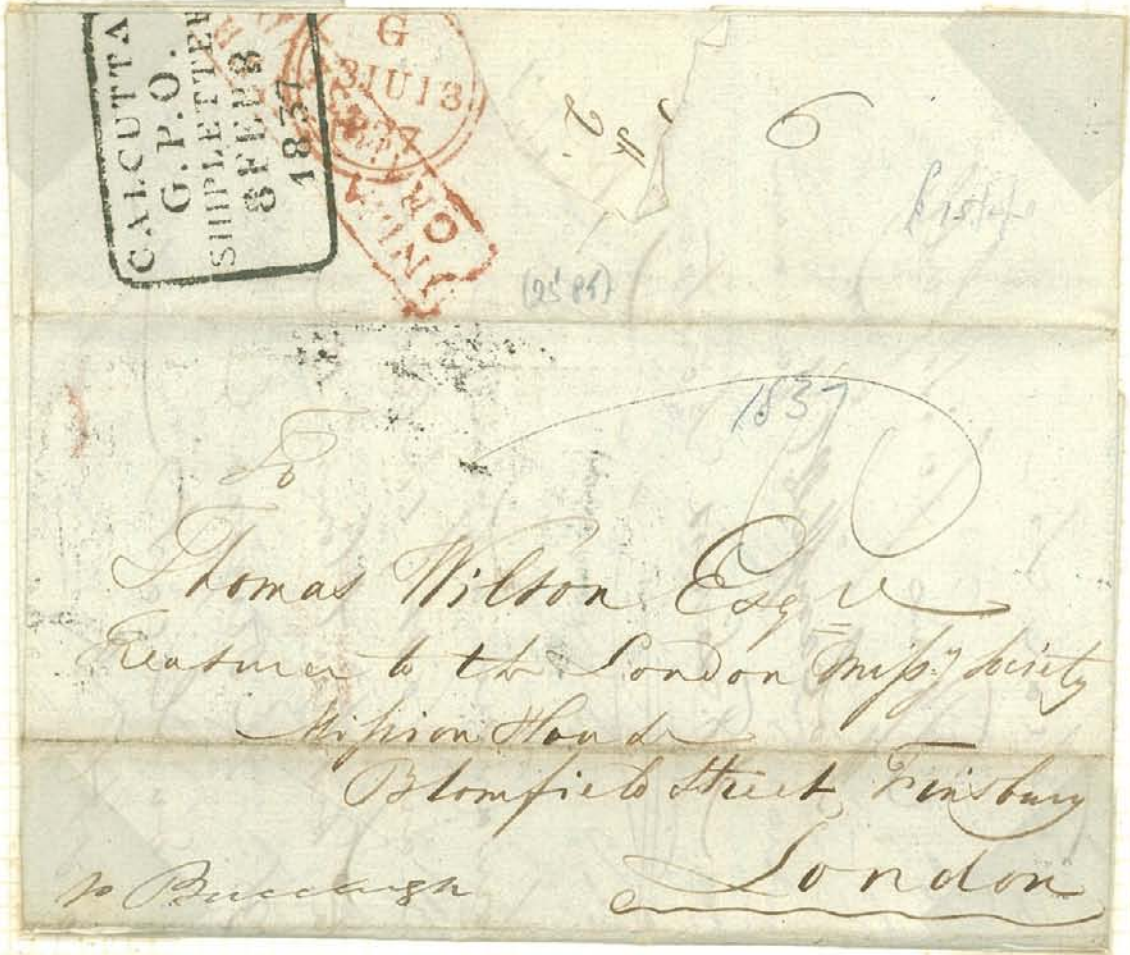 CALCUTTA
G.P.O.
SHIPLETTER
8 FEB
1837
G
13 JU 13
1837
6
(25 85)
1837
To
Thomas Wilson Esqr
Treasurer to the London Missy Society
Mission House
Blomfield Street Finsbury
London
pr Buccleugh